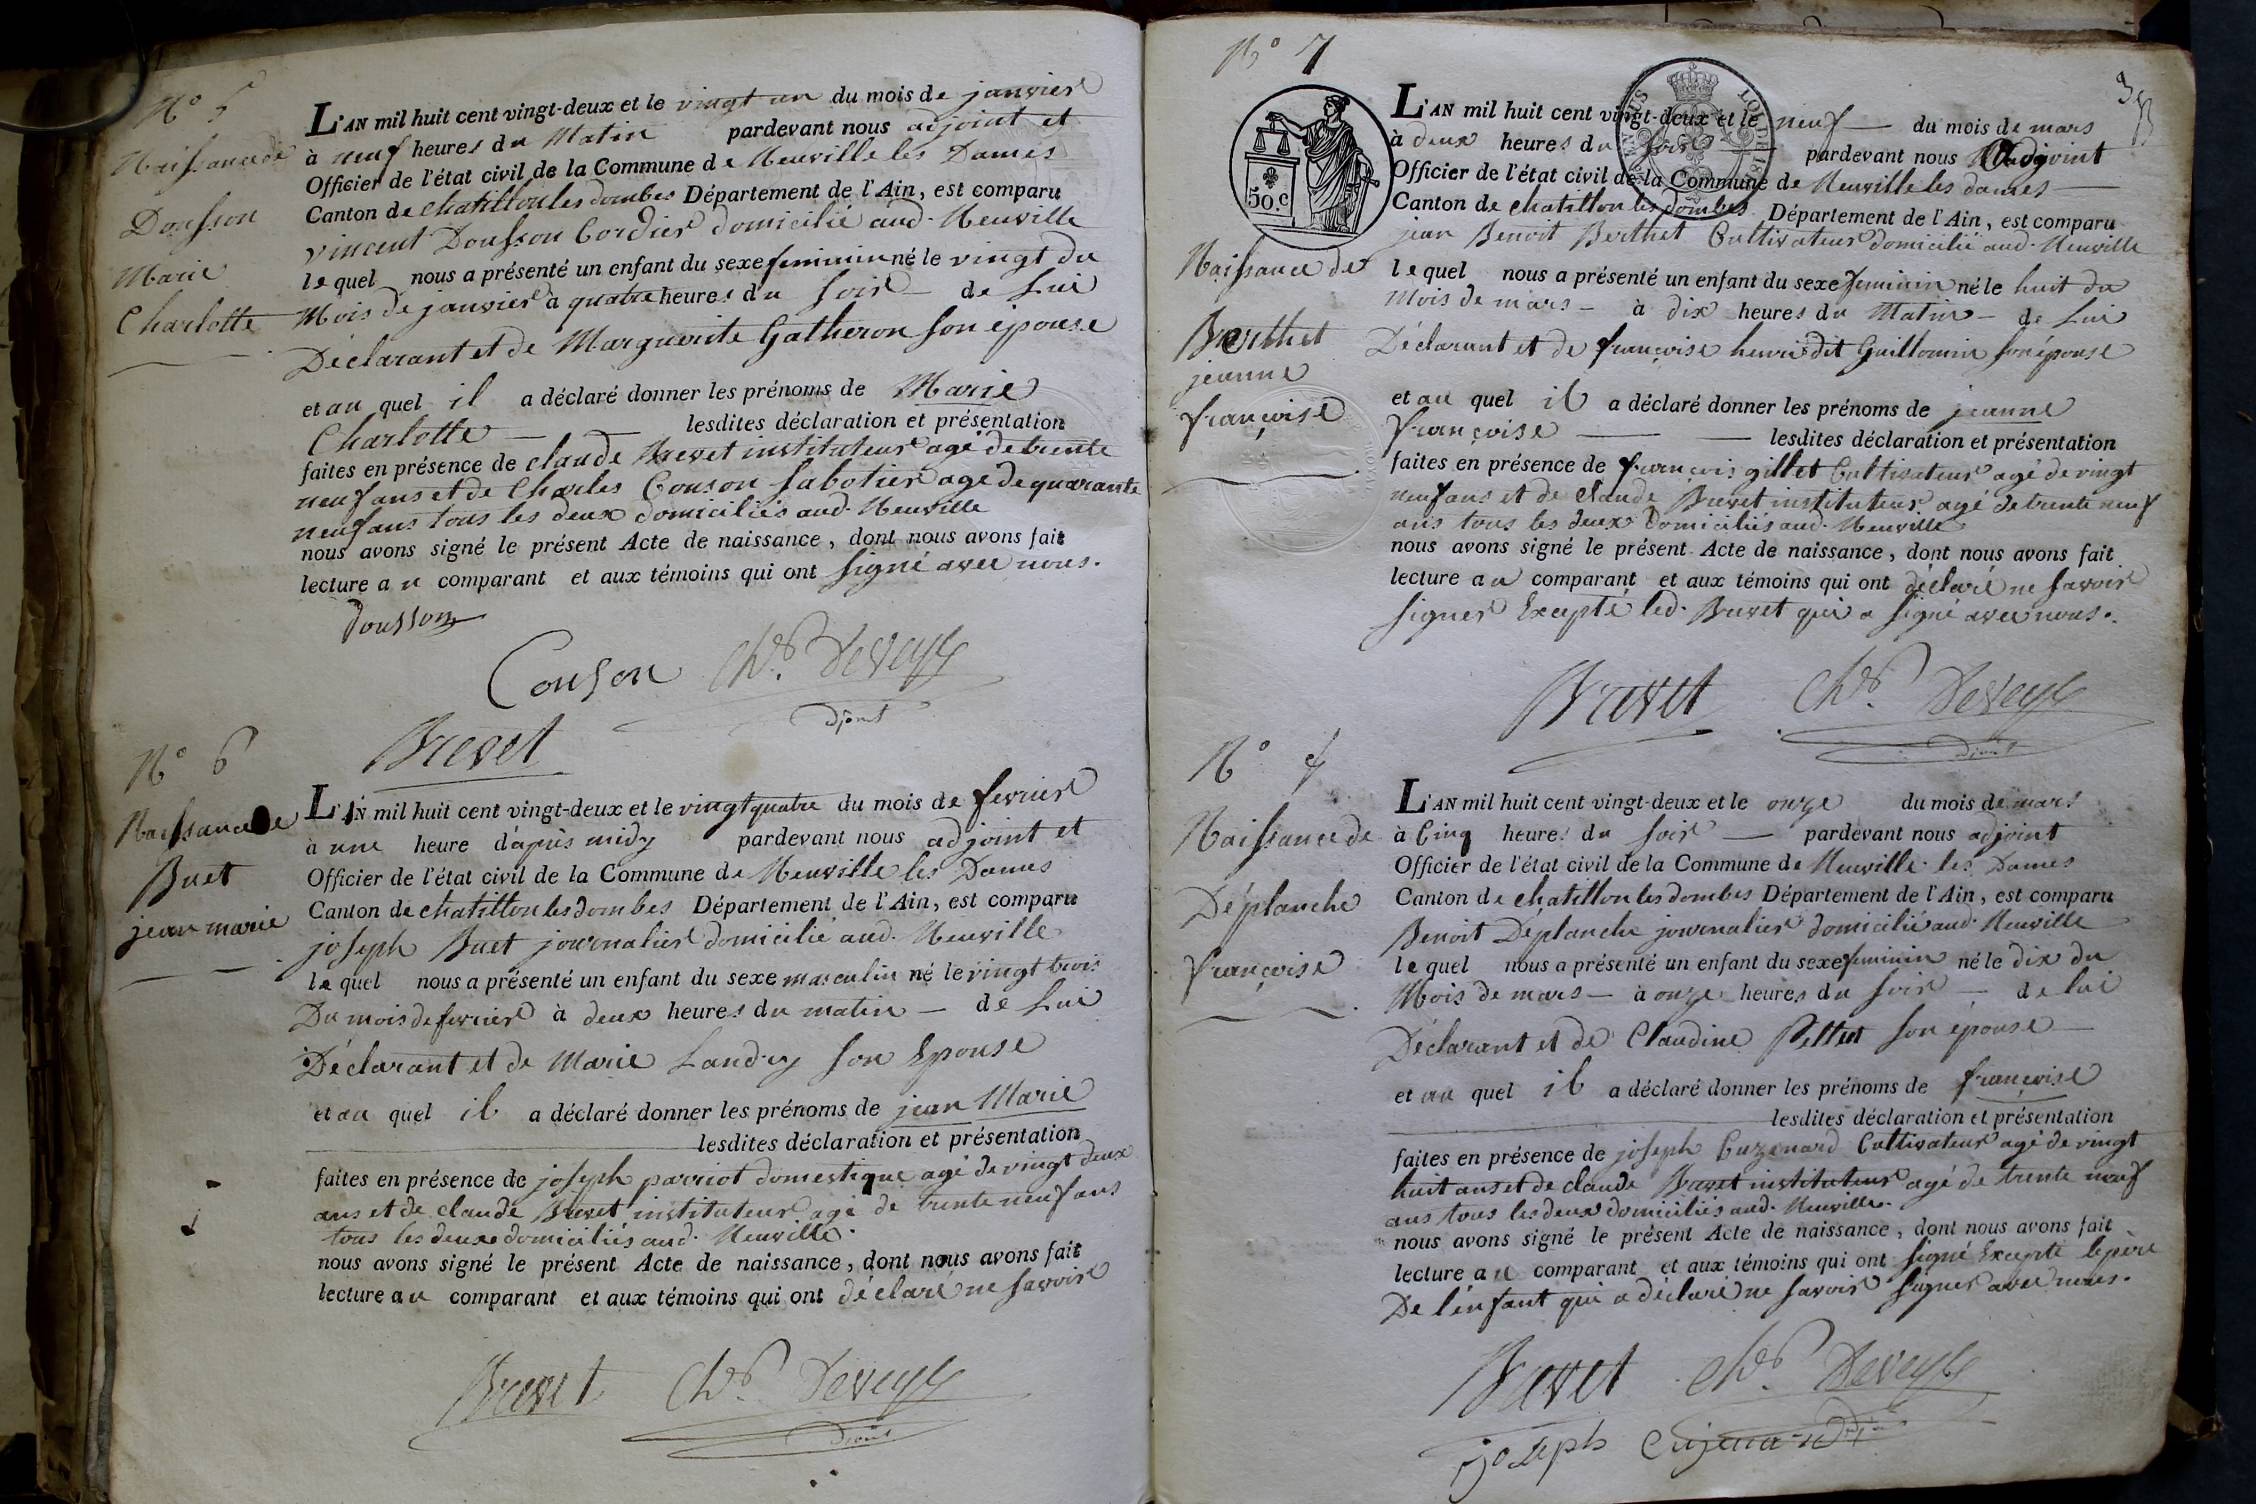 N° 5
Naissance de
Dousson
Marie
Charlotte
L'AN mil huit cent vingt-deux et le vingt un du mois de janvier
à neuf heures du Matin pardevant nous adjoint et
Officier de l'état civil de la Commune de Neuville les Dames
Canton de chatillon les dombes Département de l'Ain, est comparu
vincent Dousson Cordier domicilié aud. Neuville
lequel nous a présenté un enfant du sexe feminin né le vingt du
Mois de janvier à quatre heures du soir — de Lui
Déclarant et de Marguerite Gatheron son épouse
et au quel il a déclaré donner les prénoms de Marie
Charlotte — lesdites déclaration et présentation
faites en présence de claude Brevet instituteur agé de trente
neuf ans et de Charles Couson sabotier agé de quarante
neuf ans tous les deux domiciliés aud. Neuville
nous avons signé le présent Acte de naissance, dont nous avons fait
lecture au comparant et aux témoins qui ont signé avec nous.
Dousson
Couson Chs. Deveyle
djoint
Brevet
N° 6
Naissance de
Buet
jean marie
L'AN mil huit cent vingt-deux et le vingt quatre du mois de fevrier
à une heure d'après midy pardevant nous adjoint et
Officier de l'état civil de la Commune de Neuville les Dames
Canton de chatillon les dombes Département de l'Ain, est comparu
joseph Buet journalier domicilié aud. Neuville
lequel nous a présenté un enfant du sexe masculin né le vingt trois
Du mois de fevrier à deux heures du matin — de Lui
Déclarant et de Marie Landry son Epouse
et au quel il a déclaré donner les prénoms de jean Marie
lesdites déclaration et présentation
faites en présence de joseph parriot domestique agé de vingt deux
ans et de claude Brevet instituteur agé de trente neuf ans
tous les deux domiciliés aud. Neuville.
nous avons signé le présent Acte de naissance, dont nous avons fait
lecture au comparant et aux témoins qui ont déclaré ne savoir
Brevet Chs. Deveyle
djoint
N° 7
50.c
3
Naissance de
Berthet
jeanne
françoise
L'AN mil huit cent vingt-deux et le neuf — du mois de mars
à deux heures du soir — pardevant nous adjoint
Officier de l'état civil de la Commune de Neuville les dames —
Canton de chatillon les dombes Département de l'Ain, est comparu
jean Benoit Berthet Cultivateur domicilié aud. Neuville
lequel nous a présenté un enfant du sexe feminin né le huit du
Mois de mars — à dix heures du Matin — de Lui
Déclarant et de françoise henri dit Guillomin son épouse
et au quel il a déclaré donner les prénoms de jeanne
françoise — — lesdites déclaration et présentation
faites en présence de françois gillet Cultivateur agé de vingt
neuf ans et de claude Brevet instituteur agé de trente neuf
ans tous les deux domiciliés aud. Neuville
nous avons signé le présent Acte de naissance, dont nous avons fait
lecture au comparant et aux témoins qui ont déclaré ne savoir
signer Excepté led. Brevet qui a signé avec nous.
Brevet Chs. Deveyle
djoint
N°
Naissance de
Déplanche
françoise
L'AN mil huit cent vingt-deux et le onze du mois de mars
à Cinq heures du soir — pardevant nous adjoint
Officier de l'état civil de la Commune de Neuville les Dames
Canton de chatillon les dombes Département de l'Ain, est comparu
Benoit Déplanche journalier domicilié aud. Neuville
lequel nous a présenté un enfant du sexe feminin né le dix du
Mois de mars — à onze heures du soir — de lui
Déclarant et de Claudine Pellet son épouse —
et au quel il a déclaré donner les prénoms de françoise
lesdites déclaration et présentation
faites en présence de joseph Cuzenard Cultivateur agé de vingt
huit ans et de claude Brevet instituteur agé de trente neuf
ans tous les deux domiciliés aud. Neuville.
nous avons signé le présent Acte de naissance, dont nous avons fait
lecture au comparant et aux témoins qui ont signé Excepté le père
De l'enfant qui a déclaré ne savoir signer avec nous.
Brevet Chs. Deveyle
joseph Cujenard